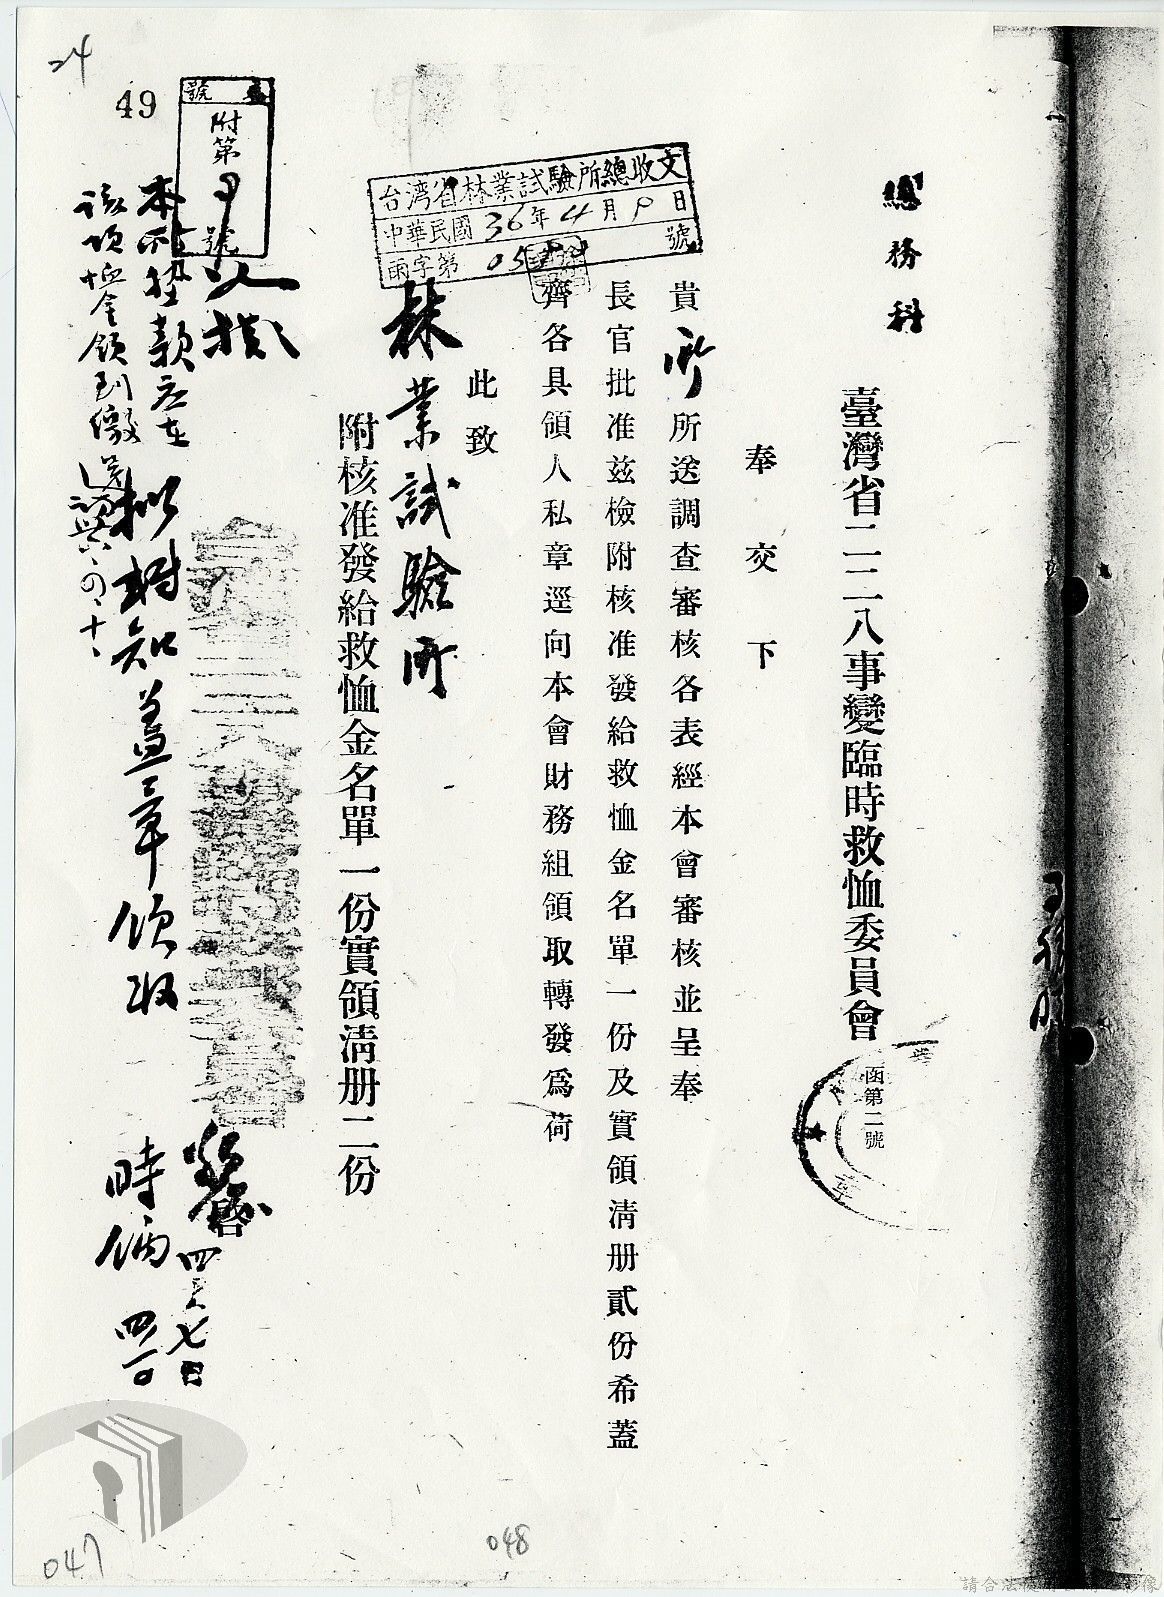 總務科
臺灣省二二八事變臨時救恤委員會
函第二號
奉交下
貴所所送調查審核各表經本會審核並呈奉
長官批准茲檢附核准發給救恤金名單一份及實領淸册貳份希蓋
齊各具領人私章逕向本會財務組領取轉發爲荷
此致
林業試驗所
附核准發給救恤金名單一份實領淸册二份
台湾省林業試驗所總收文
中華民國36年4月9日
字第 號
啓 四 七日
擬
附第 號
號
擬 知蓋章領取
時
本所
該項 金領到繳送
24
49
047
048